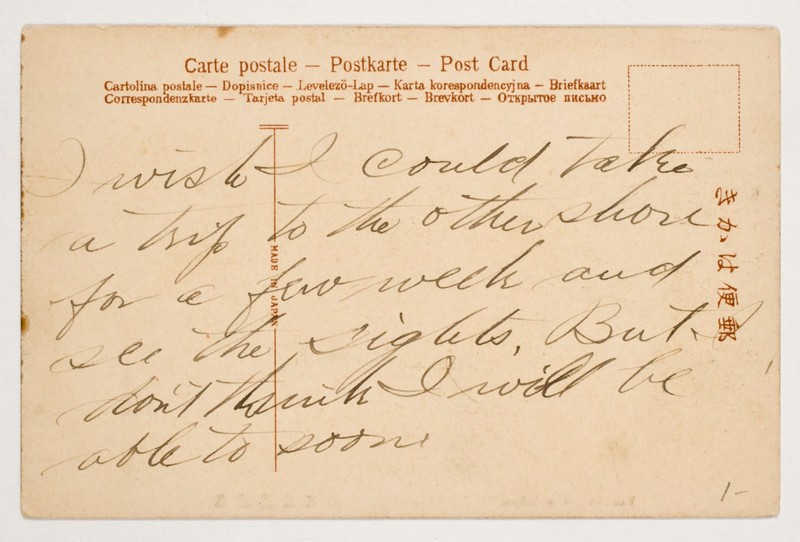 Carte postale — Postkarte — Post Card
Cartolina postale — Dopisnice — Levelezö-Lap — Karta korespondencyjna — Briefkaart
Correspondenzkarte — Tarjeta postal — Brefkort — Brevkort — Открытое письмо
I wish I could take
a trip to the other shore
for a few week and
see the sights. But I
don't think I will be
able to soon
MADE IN JAPAN
きかは便郵
1-